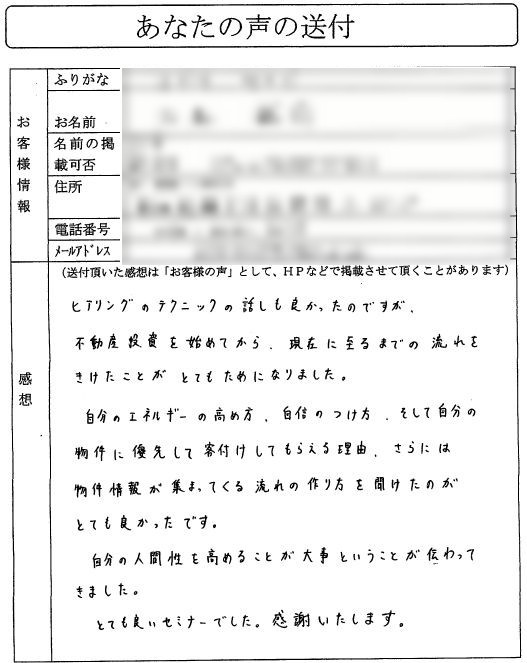 あなたの声の送付
お客様情報
ふりがな
お名前
名前の掲
載可否
住所
電話番号
メールアドレス
感想
(送付頂いた感想は「お客様の声」として、HPなどで掲載させて頂くことがあります)
ヒアリングのテクニックの話しも良かったのですが、
不動産投資を始めてから、現在に至るまでの流れを
きけたことが とてもためになりました。
自分のエネルギーの高め方、自信のつけ方、そして自分の
物件に優先して客付けしてもらえる理由、さらには
物件情報が集まってくる流れの作り方を聞けたのが
とても良かったです。
自分の人間性を高めることが大事ということが伝わって
きました。
とても良いセミナーでした。感謝いたします。